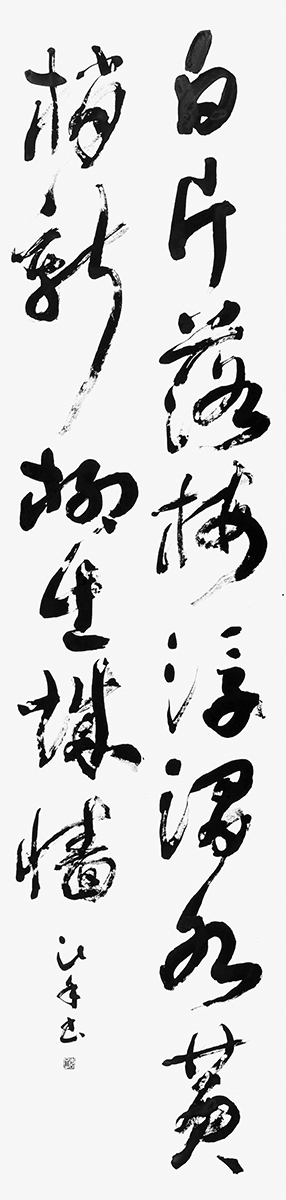 白片落梅浮澗水黄
梢新柳出城墻
書